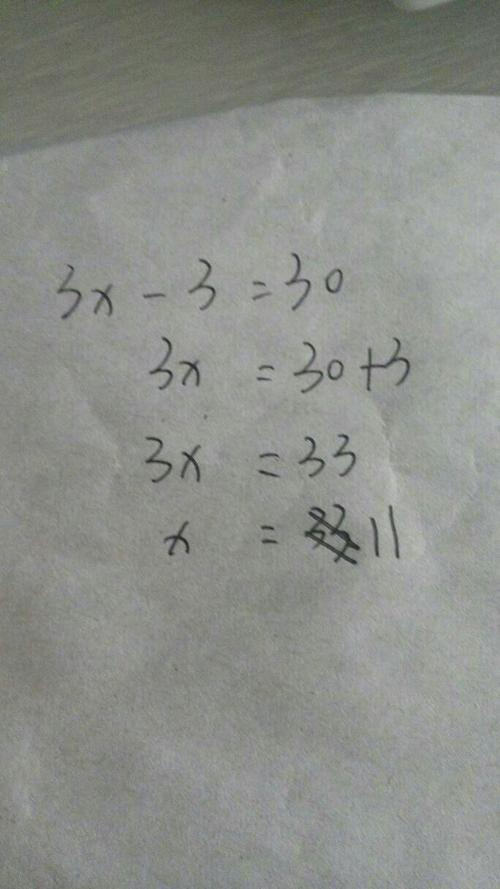 3x - 3 = 30
3x = 30+3
3x = 33
x = 11